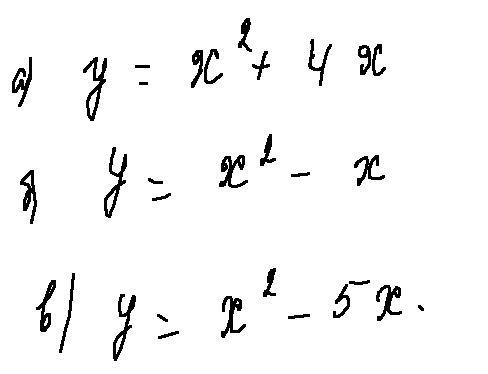 а) y = x² + 4x
б) y = x² - x
в) y = x² - 5x.